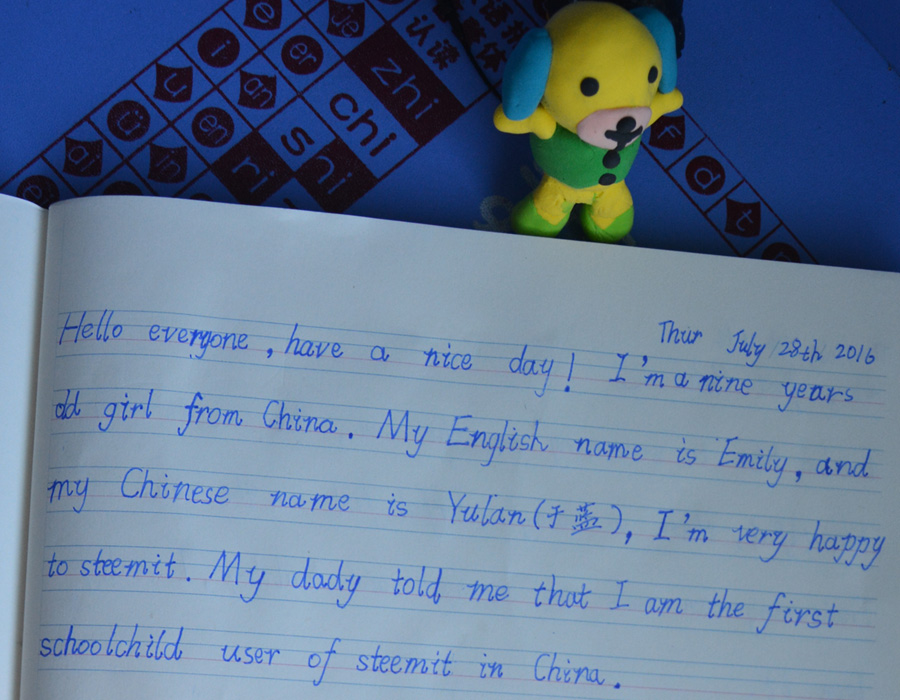 e üe 认读
i er zhi
u an chi
ü en shi
ai in ri
f
d
t
Thur July 28th 2016
Hello everyone , have a nice day! I'm a nine years
old girl from China. My English name is Emily, and
my Chinese name is Yulan (于蓝), I'm very happy
to steemit. My dady told me that I am the first
schoolchild user of steemit in China.